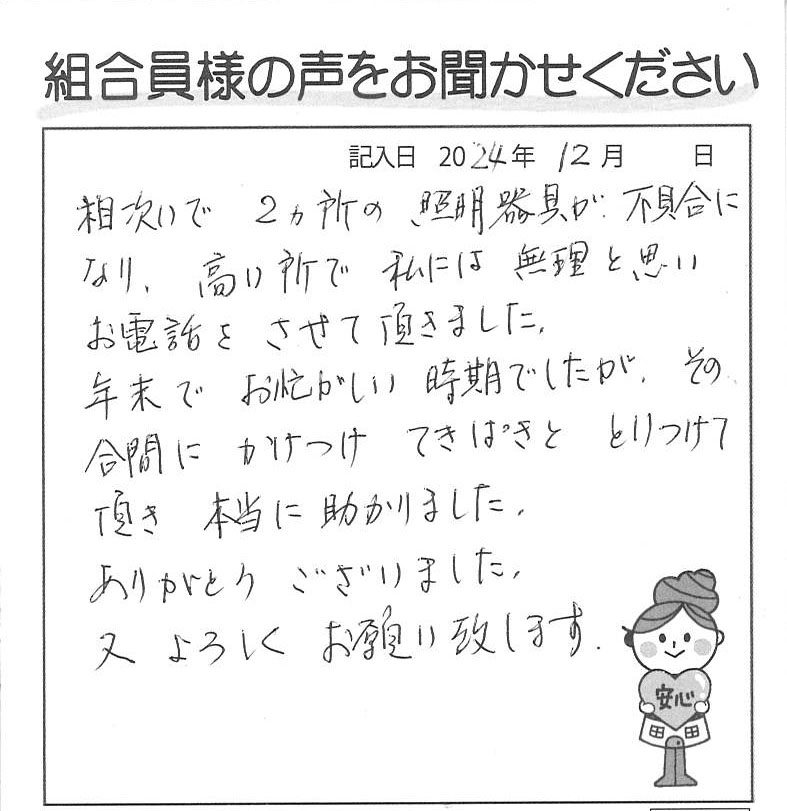 組合員様の声をお聞かせください
記入日 2024年 12月 日
相次いで 2ヵ所の 照明器具が 不具合に
なり、高い所で 私には 無理と思い
お電話を させて頂きました。
年末で お忙がしい 時期でしたが、その
合間に かけつけ てきぱきと とりつけて
頂き 本当に 助かりました。
ありがとう ございました。
又 よろしく お願い致します。
安心